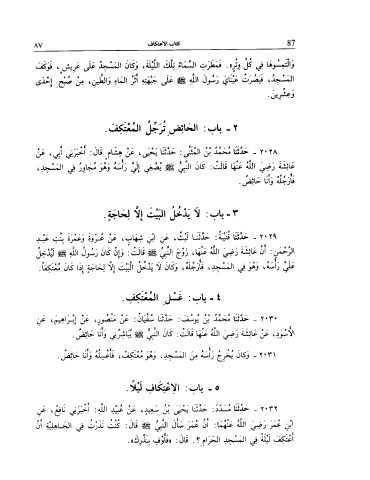 87 كتاب الاعتكاف ٨٧
وَالْتَمِسُوهَا فِي كُلِّ وِتْرٍ». فَمَطَرَتِ السَّمَاءُ تِلْكَ اللَّيْلَةَ، وَكَانَ الْمَسْجِدُ عَلَى عَرِيشٍ، فَوَكَفَ
الْمَسْجِدُ، فَبَصُرَتْ عَيْنَايَ رَسُولَ اللَّهِ ﷺ عَلَى جَبْهَتِهِ أَثَرُ الْمَاءِ وَالطِّينِ، مِنْ صُبْحِ إِحْدَى
وَعِشْرِينَ.
٢ - باب: الحَائِضِ تُرَجِّلُ المُعْتَكِفَ.
٢٠٢٨ - حَدَّثَنَا مُحَمَّدُ بْنُ المُثَنَّى: حَدَّثَنَا يَحْيَى، عَنْ هِشَامٍ قَالَ: أَخْبَرَنِي أَبِي، عَنْ
عَائِشَةَ رَضِيَ اللَّهُ عَنْهَا قَالَتْ: كَانَ النَّبِيُّ ﷺ يُصْغِي إِلَيَّ رَأْسَهُ وَهُوَ مُجَاوِرٌ فِي المَسْجِدِ،
فَأُرَجِّلُهُ وَأَنَا حَائِضٌ.
٣ - باب: لَا يَدْخُلُ البَيْتَ إِلَّا لِحَاجَةٍ.
٢٠٢٩ - حَدَّثَنَا قُتَيْبَةُ: حَدَّثَنَا لَيْثٌ، عَنِ ابْنِ شِهَابٍ، عَنْ عُرْوَةَ وَعَمْرَةَ بِنْتِ عَبْدِ
الرَّحْمٰنِ: أَنَّ عَائِشَةَ رَضِيَ اللَّهُ عَنْهَا، زَوْجَ النَّبِيِّ ﷺ قَالَتْ: وَإِنْ كَانَ رَسُولُ اللَّهِ ﷺ لَيُدْخِلُ
عَلَيَّ رَأْسَهُ، وَهُوَ فِي المَسْجِدِ، فَأُرَجِّلُهُ، وَكَانَ لَا يَدْخُلُ البَيْتَ إِلَّا لِحَاجَةٍ إِذَا كَانَ مُعْتَكِفًا.
٤ - باب: غَسْلِ المُعْتَكِفِ.
٢٠٣٠ - حَدَّثَنَا مُحَمَّدُ بْنُ يُوسُفَ: حَدَّثَنَا سُفْيَانُ، عَنْ مَنْصُورٍ، عَنْ إِبْرَاهِيمَ، عَنِ
الأَسْوَدِ، عَنْ عَائِشَةَ رَضِيَ اللَّهُ عَنْهَا قَالَتْ: كَانَ النَّبِيُّ ﷺ يُبَاشِرُنِي وَأَنَا حَائِضٌ.
٢٠٣١ - وَكَانَ يُخْرِجُ رَأْسَهُ مِنَ المَسْجِدِ، وَهُوَ مُعْتَكِفٌ، فَأَغْسِلُهُ وَأَنَا حَائِضٌ.
٥ - باب: الاِعْتِكَافِ لَيْلًا.
٢٠٣٢ - حَدَّثَنَا مُسَدَّدٌ: حَدَّثَنَا يَحْيَى بْنُ سَعِيدٍ، عَنْ عُبَيْدِ اللَّهِ: أَخْبَرَنِي نَافِعٌ، عَنِ
ابْنِ عُمَرَ رَضِيَ اللَّهُ عَنْهُمَا: أَنَّ عُمَرَ سَأَلَ النَّبِيَّ ﷺ قَالَ: كُنْتُ نَذَرْتُ فِي الجَاهِلِيَّةِ أَنْ
أَعْتَكِفَ لَيْلَةً فِي المَسْجِدِ الحَرَامِ؟. قَالَ: «فَأَوْفِ بِنَذْرِكَ».